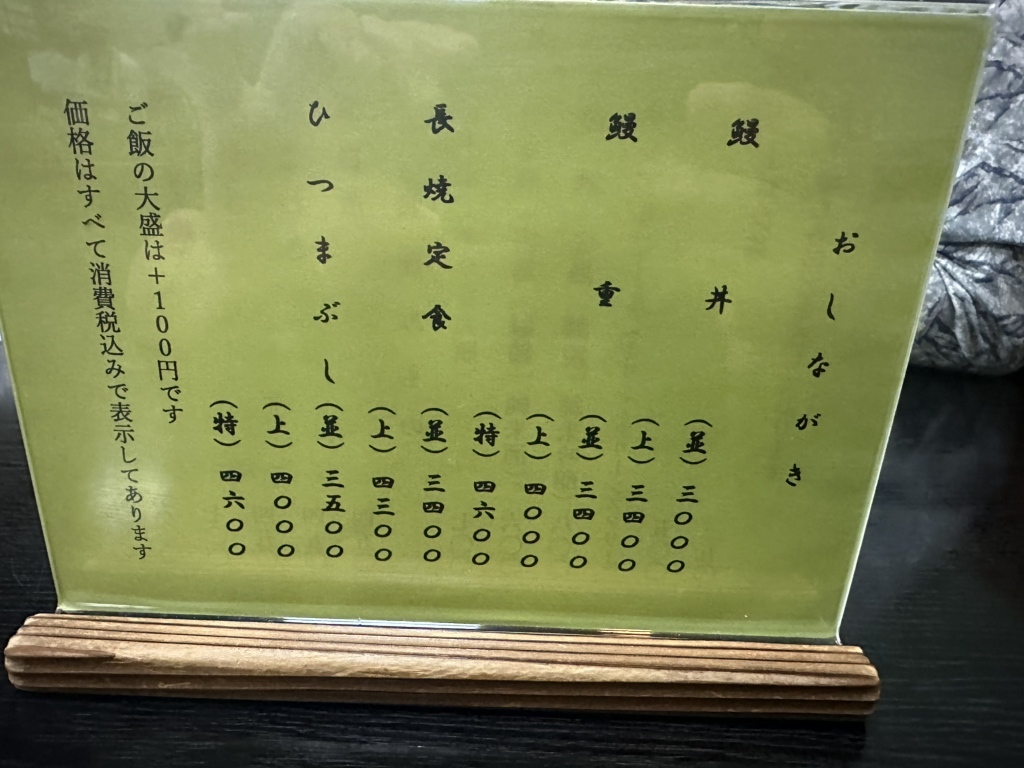 おしながき
鰻丼
(並)三〇〇〇
(上)三四〇〇
鰻重
(並)三四〇〇
(上)四〇〇〇
(特)四六〇〇
長焼定食
(並)三四〇〇
(上)四三〇〇
ひつまぶし
(並)三五〇〇
(上)四〇〇〇
(特)四六〇〇
ご飯の大盛は+100円です
価格はすべて消費税込みで表示してあります